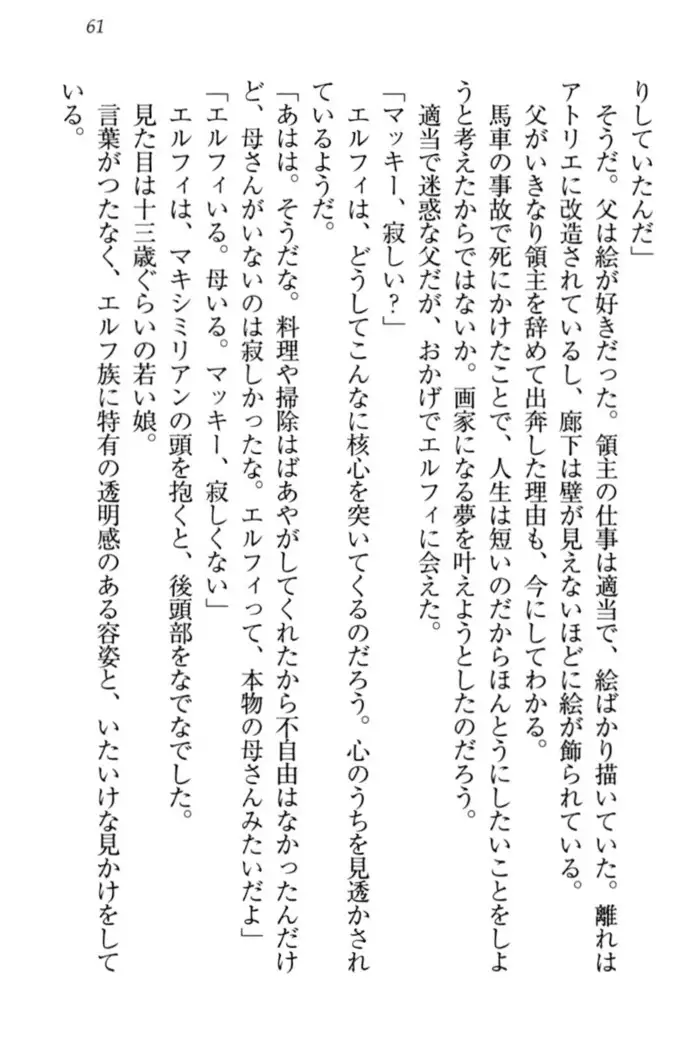 61
りしていたんだ」
そうだ。父は絵が好きだった。領主の仕事は適当で、絵ばかり描いていた。離れは
アトリエに改造されているし、廊下は壁が見えないほどに絵が飾られている。
父がいきなり領主を辞めて出奔した理由も、今にしてわかる。
馬車の事故で死にかけたことで、人生は短いのだからほんとうにしたいことをしよ
うと考えたからではないか。画家になる夢を叶えようとしたのだろう。
適当で迷惑な父だが、おかげでエルフィに会えた。
「マッキー、寂しい？」
エルフィは、どうしてこんなに核心を突いてくるのだろう。心のうちを見透かされ
ているようだ。
「あはは。そうだな。料理や掃除はばあやがしてくれたから不自由はなかったんだけ
ど、母さんがいないのは寂しかったな。エルフィって、本物の母さんみたいだよ」
「エルフィいる。母いる。マッキー、寂しくない」
エルフィは、マキシミリアンの頭を抱くと、後頭部をなでなでした。
見た目は十三歳ぐらいの若い娘。
言葉がつたなく、エルフ族に特有の透明感のある容姿と、いたいけな見かけをして
いる。